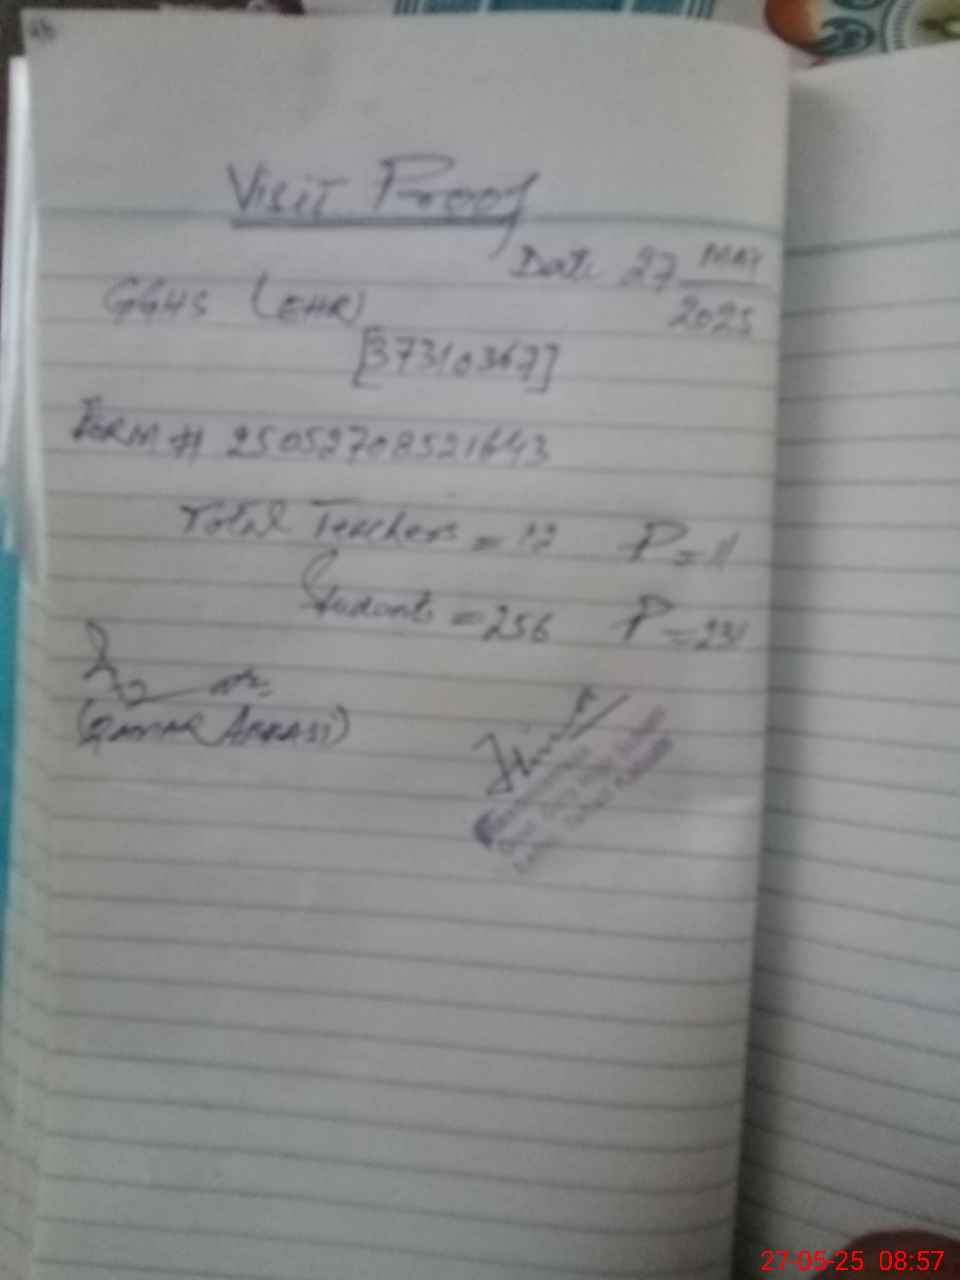 Visit Proof
Date 27 MAY
2025
GGHS (EHR)
[37310367]
FORM # 25052708521643
Total Teachers = 12 P = 11
Students = 256 P = 231
(QAMAR ABBASI)
27-05-25 08:57